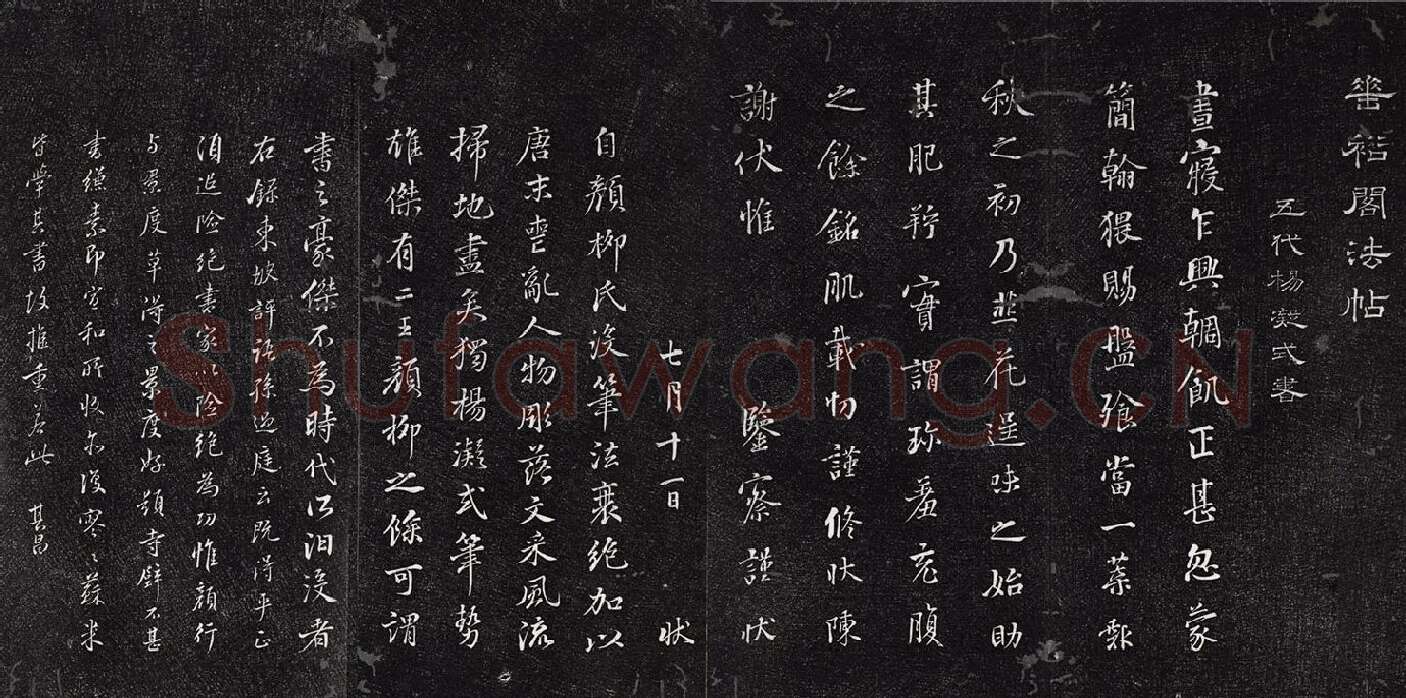 書種閣法帖
五代楊凝式書
晝寢乍興輖飢正甚忽蒙
簡翰猥賜盤飧當一葉報
秋之初乃韭花逞味之始助
其肥羜實謂珍羞充腹
之餘銘肌載切謹修狀陳
謝伏惟 鑒察謹狀
七月十一日 狀
自顏柳氏沒筆法衰絕加以
唐末喪亂人物彫落文采風流
掃地盡矣獨楊凝式筆勢
雄傑有二王顏柳之餘可謂
書之豪傑不為時代所汩沒者
右錄東坡評語孫過庭云既得平正
須追險絕書家以險絕為功惟顏行
与景度草得之景度好題寺壁不甚
書縑素即宣和所收亦復寥寥蘇米
皆學其書故推重若此 其昌
Shufawang.CN